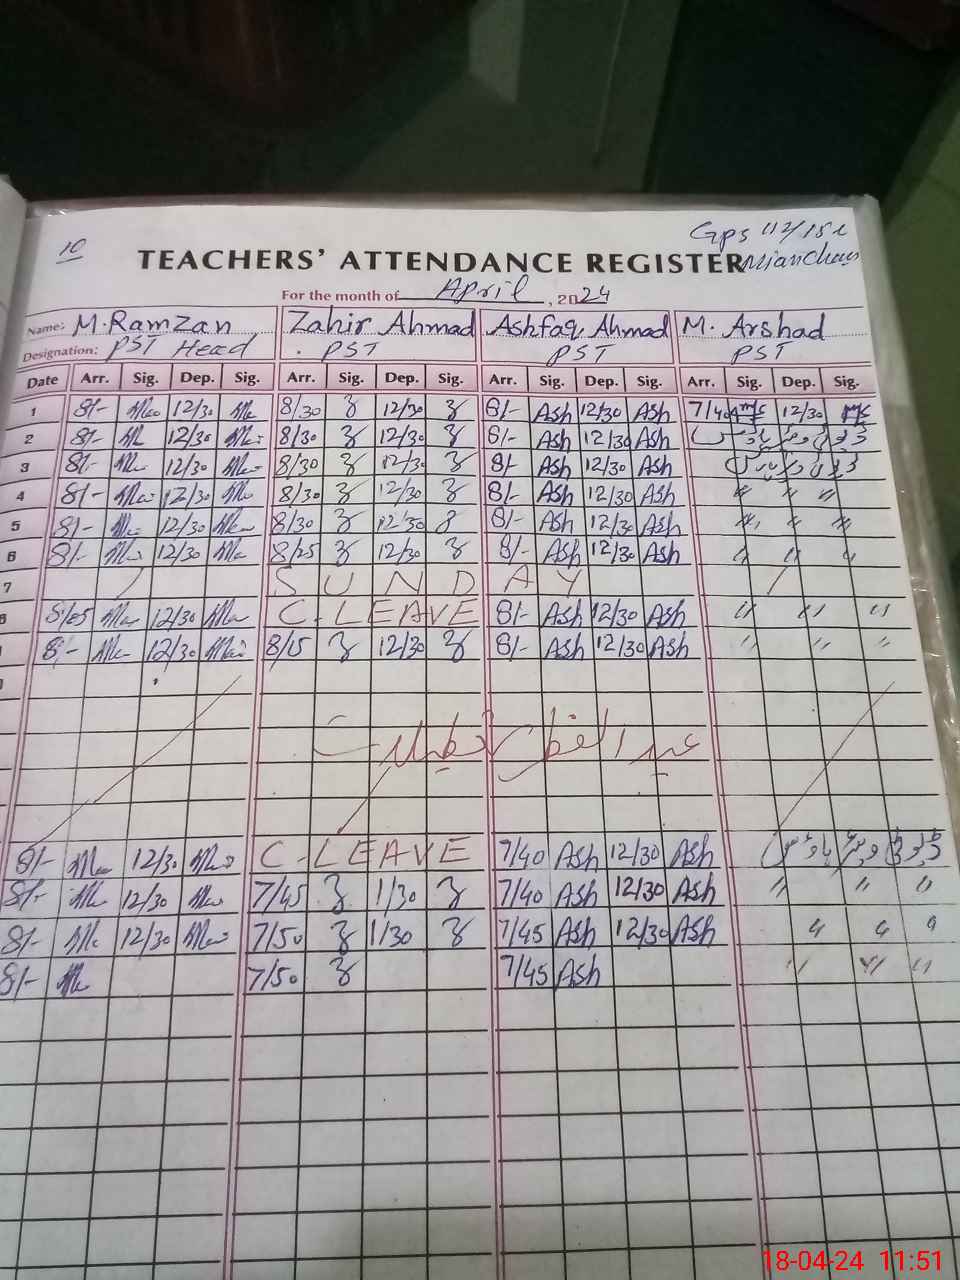 10
Gps 112/15L
Mianchannu
TEACHERS' ATTENDANCE REGISTER
For the month of April, 2024
Name: M. Ramzan Zahir Ahmad Ashfaq Ahmad M. Arshad
Designation: PST Head PST PST PST
Date Arr. Sig. Dep. Sig. Arr. Sig. Dep. Sig. Arr. Sig. Dep. Sig. Arr. Sig. Dep. Sig.
1 8/- 12/30 8/30 12/30 8/- Ash 12/30 Ash 7/40 12/30
2 8/- 12/30 8/30 12/30 8/- Ash 12/30 Ash
3 8/- 12/30 8/30 12/30 8/- Ash 12/30 Ash
4 8/- 12/30 8/30 12/30 8/- Ash 12/30 Ash " " "
5 8/- 12/30 8/30 12/30 8/- Ash 12/30 Ash " " "
6 8/- 12/30 8/25 12/30 8/- Ash 12/30 Ash " " "
7 SUNDAY
8 8/05 12/30 C-LEAVE 8/- Ash 12/30 Ash " " "
8/- 12/30 8/15 12/30 8/- Ash 12/30 Ash " " "
عید الفطر تعطیلات
8/- 12/30 C-LEAVE 7/40 Ash 12/30 Ash
8/- 12/30 7/45 1/30 7/40 Ash 12/30 Ash " " "
8/- 12/30 7/50 1/30 7/45 Ash 12/30 Ash " " "
8/- 7/50 7/45 Ash " " "
18-04-24 11:51